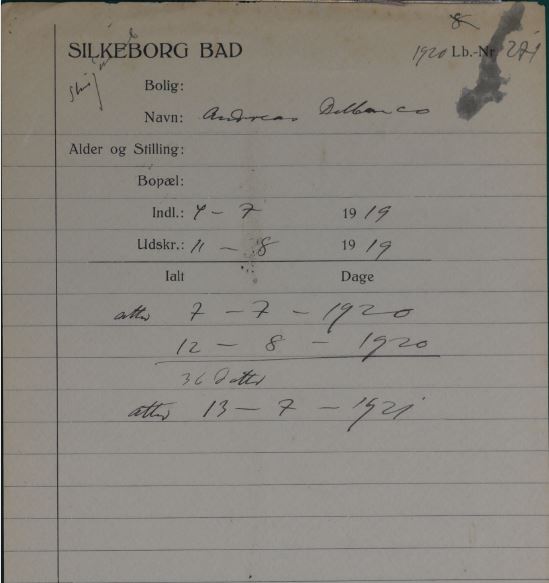 SILKEBORG BAD
1920 Lb.-Nr 271
Bolig:
Navn: Andreas Delbanco
Alder og Stilling:
Bopæl:
Indl.: 7 - 7 1919
Udskr.: 11 - 8 1919
Ialt Dage
atter 7 - 7 - 1920
12 - 8 - 1920
36 d atter
atter 13 - 7 - 1921